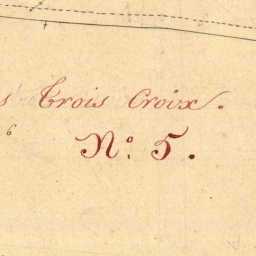 s Trois Croix.
6
Nº. 5.